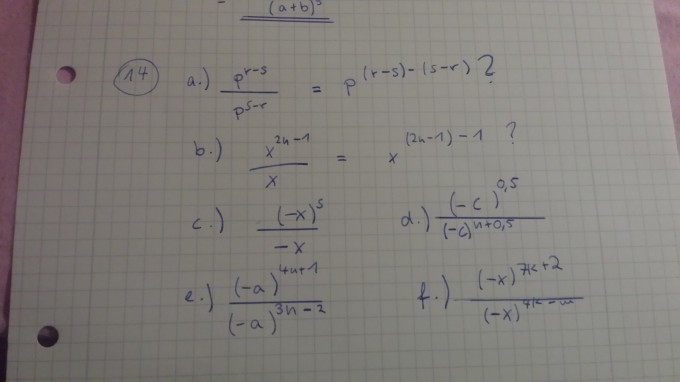 (a+b)⁵
14 a.) p^(r-s) / p^(s-r) = p^((r-s)-(s-r)) ?
b.) x^(2n-1) / x = x^((2n-1)-1) ?
c.) (-x)⁵ / -x d.) (-c)^(0,5) / (-c)^(n+0,5)
e.) (-a)^(4n+1) / (-a)^(3n-2) f.) (-x)^(7k+2) / (-x)^(4k-m)